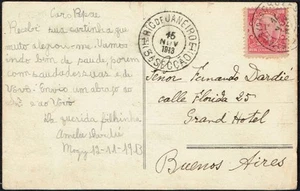 Recebi sua cartinha que
muito alegrou-me. Vamos
indo bem de saude, porem
com saudades suas e de
um abraço
querida filhinha
Amelia
12-11-1913
RIO DE JANEIRO
15
NOV
1913
5ª SECÇÃO
Señor Fernando Dardié
calle Florida 25
Grand Hotel
Buenos Aires